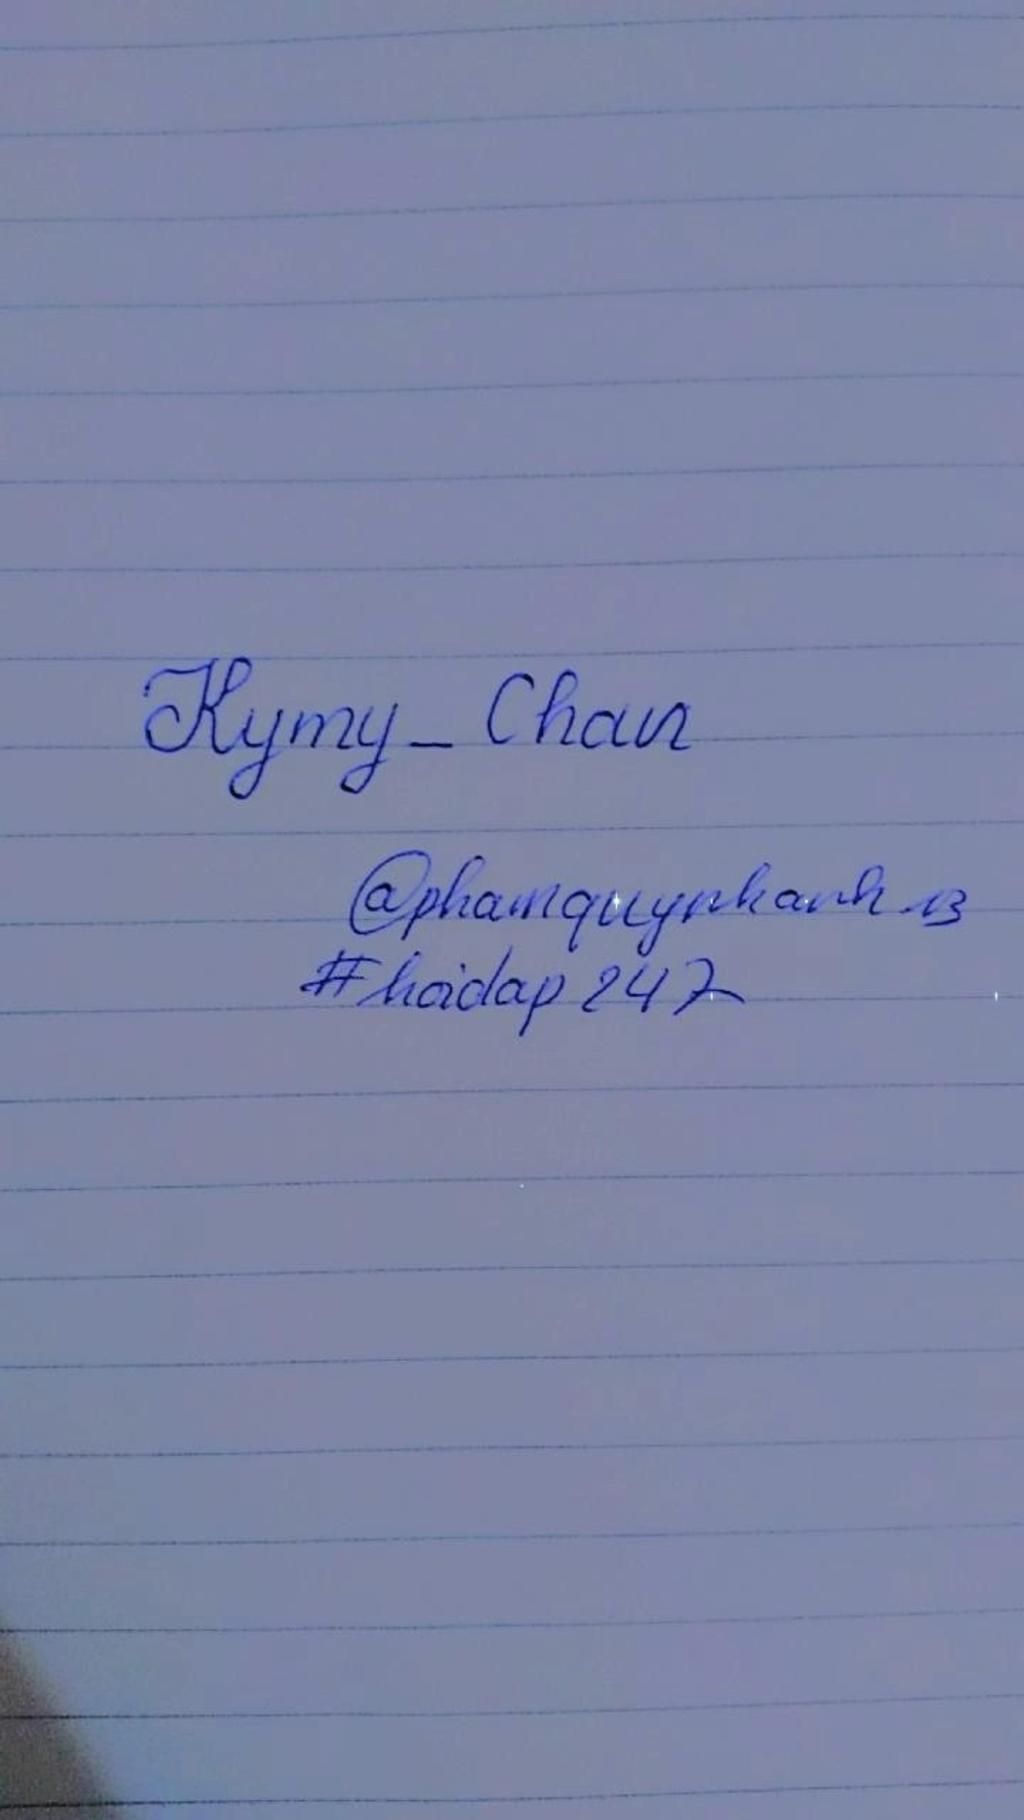 Kymy_Chan
@phamquynhanh_13
#hoidap247